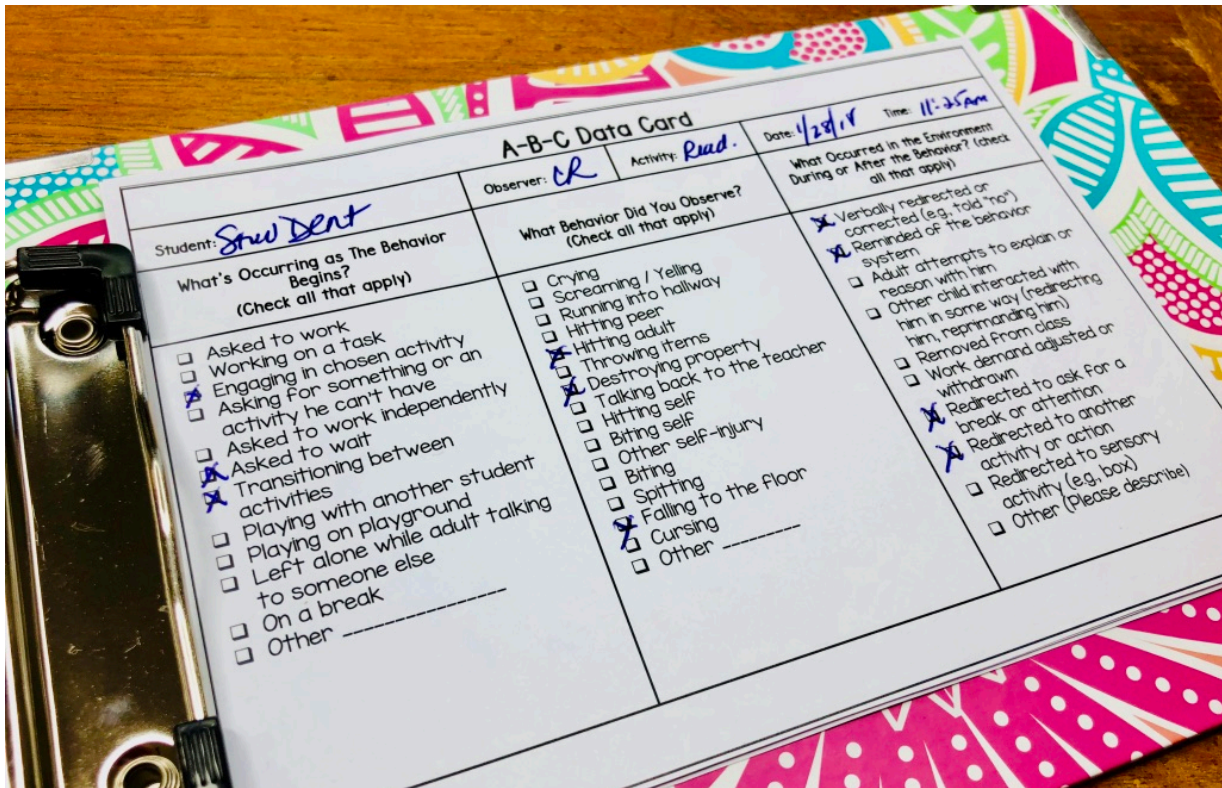 A-B-C Data Card
Student: Stew Dent
Observer: CR
Activity: Read.
Date: 1/28/18
Time: 11:25 AM
What's Occurring as The Behavior
Begins?
(Check all that apply)
Asked to work
Working on a task
Engaging in chosen activity
Asking for something or an
activity he can't have
Asked to work independently
Asked to wait
Transitioning between
activities
Playing with another student
Playing on playground
Left alone while adult talking
to someone else
On a break
Other
What Behavior Did You Observe?
(Check all that apply)
Crying
Screaming / Yelling
Running into hallway
Hitting peer
Hitting adult
Throwing items
Destroying property
Talking back to the teacher
Hitting self
Biting self
Other self-injury
Biting
Spitting
Falling to the floor
Cursing
Other
What Occurred in the Environment
During or After the Behavior? (check
all that apply)
Verbally redirected or
corrected (e.g., told "no")
Reminded of the behavior
system
Adult attempts to explain or
reason with him
Other child interacted with
him in some way (redirecting
him, reprimanding him)
Removed from class
Work demand adjusted or
withdrawn
Redirected to ask for a
break or attention
Redirected to another
activity or action
Redirected to sensory
activity (e.g., box)
Other (Please describe)